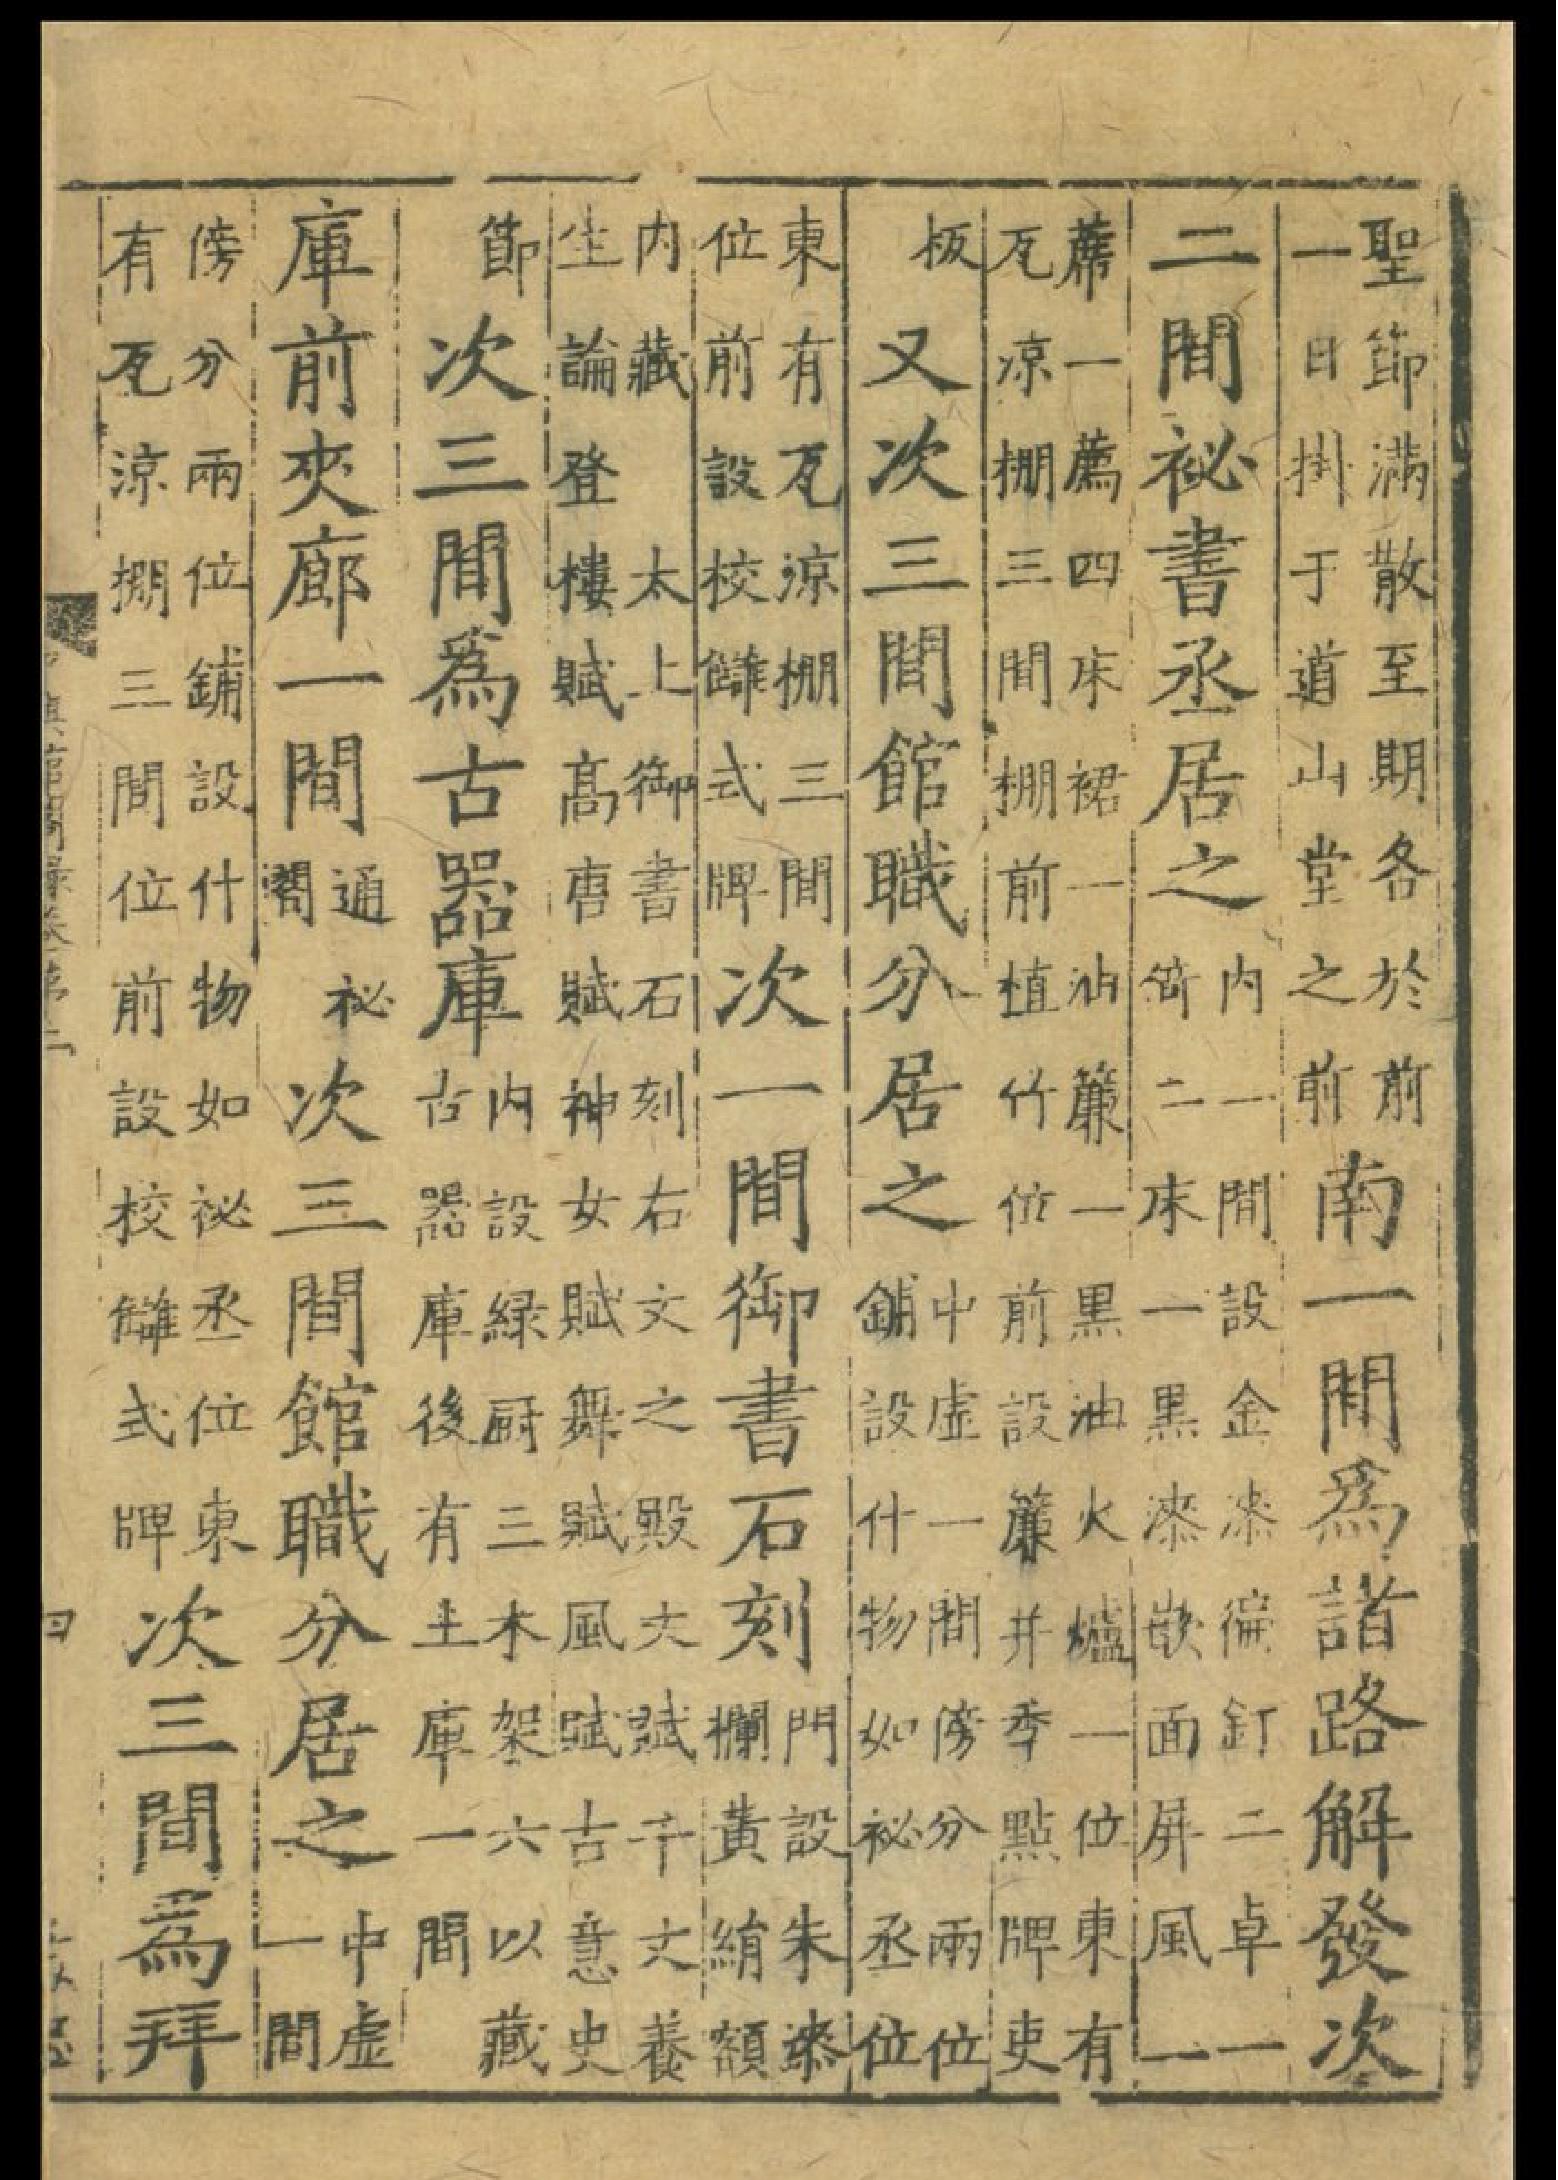 聖節滿散至期各於前
一日掛于道山堂之前前
南一間爲諧路解發次
二間祕書丞居之
内一間設金漆徧釘二卓一
倚二床一黑漆嵌面屏風一
蓆一薦四床裙一油簾一黑油火爐一位東有
瓦凉棚三間棚前植竹位前設簾并季點牌吏
板
又次三間館職分居之
中虛一間傍分兩位
鋪設什物如祕丞位
東有瓦涼棚三間
位前設校讎式牌
次一間御書石刻
門設朱漆
欄黃絹額
内藏 太上御書石刻右文之殿大賦千文養
生論登樓賦高唐賦神女賦舞賦風賦古意史
節
次三間爲古器庫
内設綠厨三木架六以藏
古器庫後有土庫一間
庫前夾廊一間
通祕
閣
次三間館職分居之
中虛
一間
傍分兩位鋪設什物如祕丞位東
有瓦涼棚三間位前設校讎式牌
次三間爲拜
四